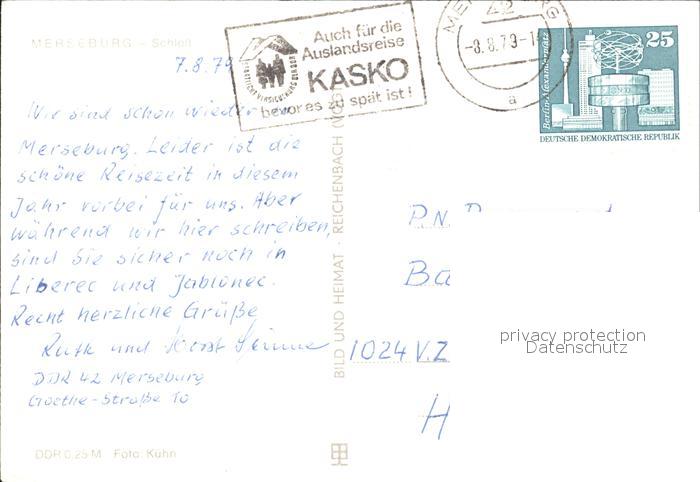 MERSEBURG – Schloß
7.8.79
Wir sind schon wieder in
Merseburg. Leider ist die
schöne Reisezeit in diesem
Jahr vorbei für uns. Aber
während wir hier schreiben,
sind Sie sicher noch in
Liberec und Jablonec.
Recht herzliche Grüße
Ruth und Horst
DDR 42 Merseburg
Goethe-Straße 10
DDR 0,25 M Foto: Kühn
BILD UND HEIMAT · REICHENBACH
Auch für die
Auslandsreise
KASKO
bevor es zu spät ist!
42
-8.8.79-1
a
25
Berlin-Alexanderplatz
DEUTSCHE DEMOKRATISCHE REPUBLIK
Ba
1024 V.Z
H
privacy protection
Datenschutz